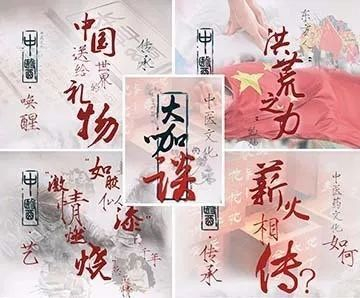 中醫
·唤醒
中国
送给世界的
礼物
传承
洪荒之力
大咖谈
中医文化
中醫
·艺
"激情燃烧"
"如胶似漆"
千年
中醫
·传承
中医药文化
如何
薪火相传?